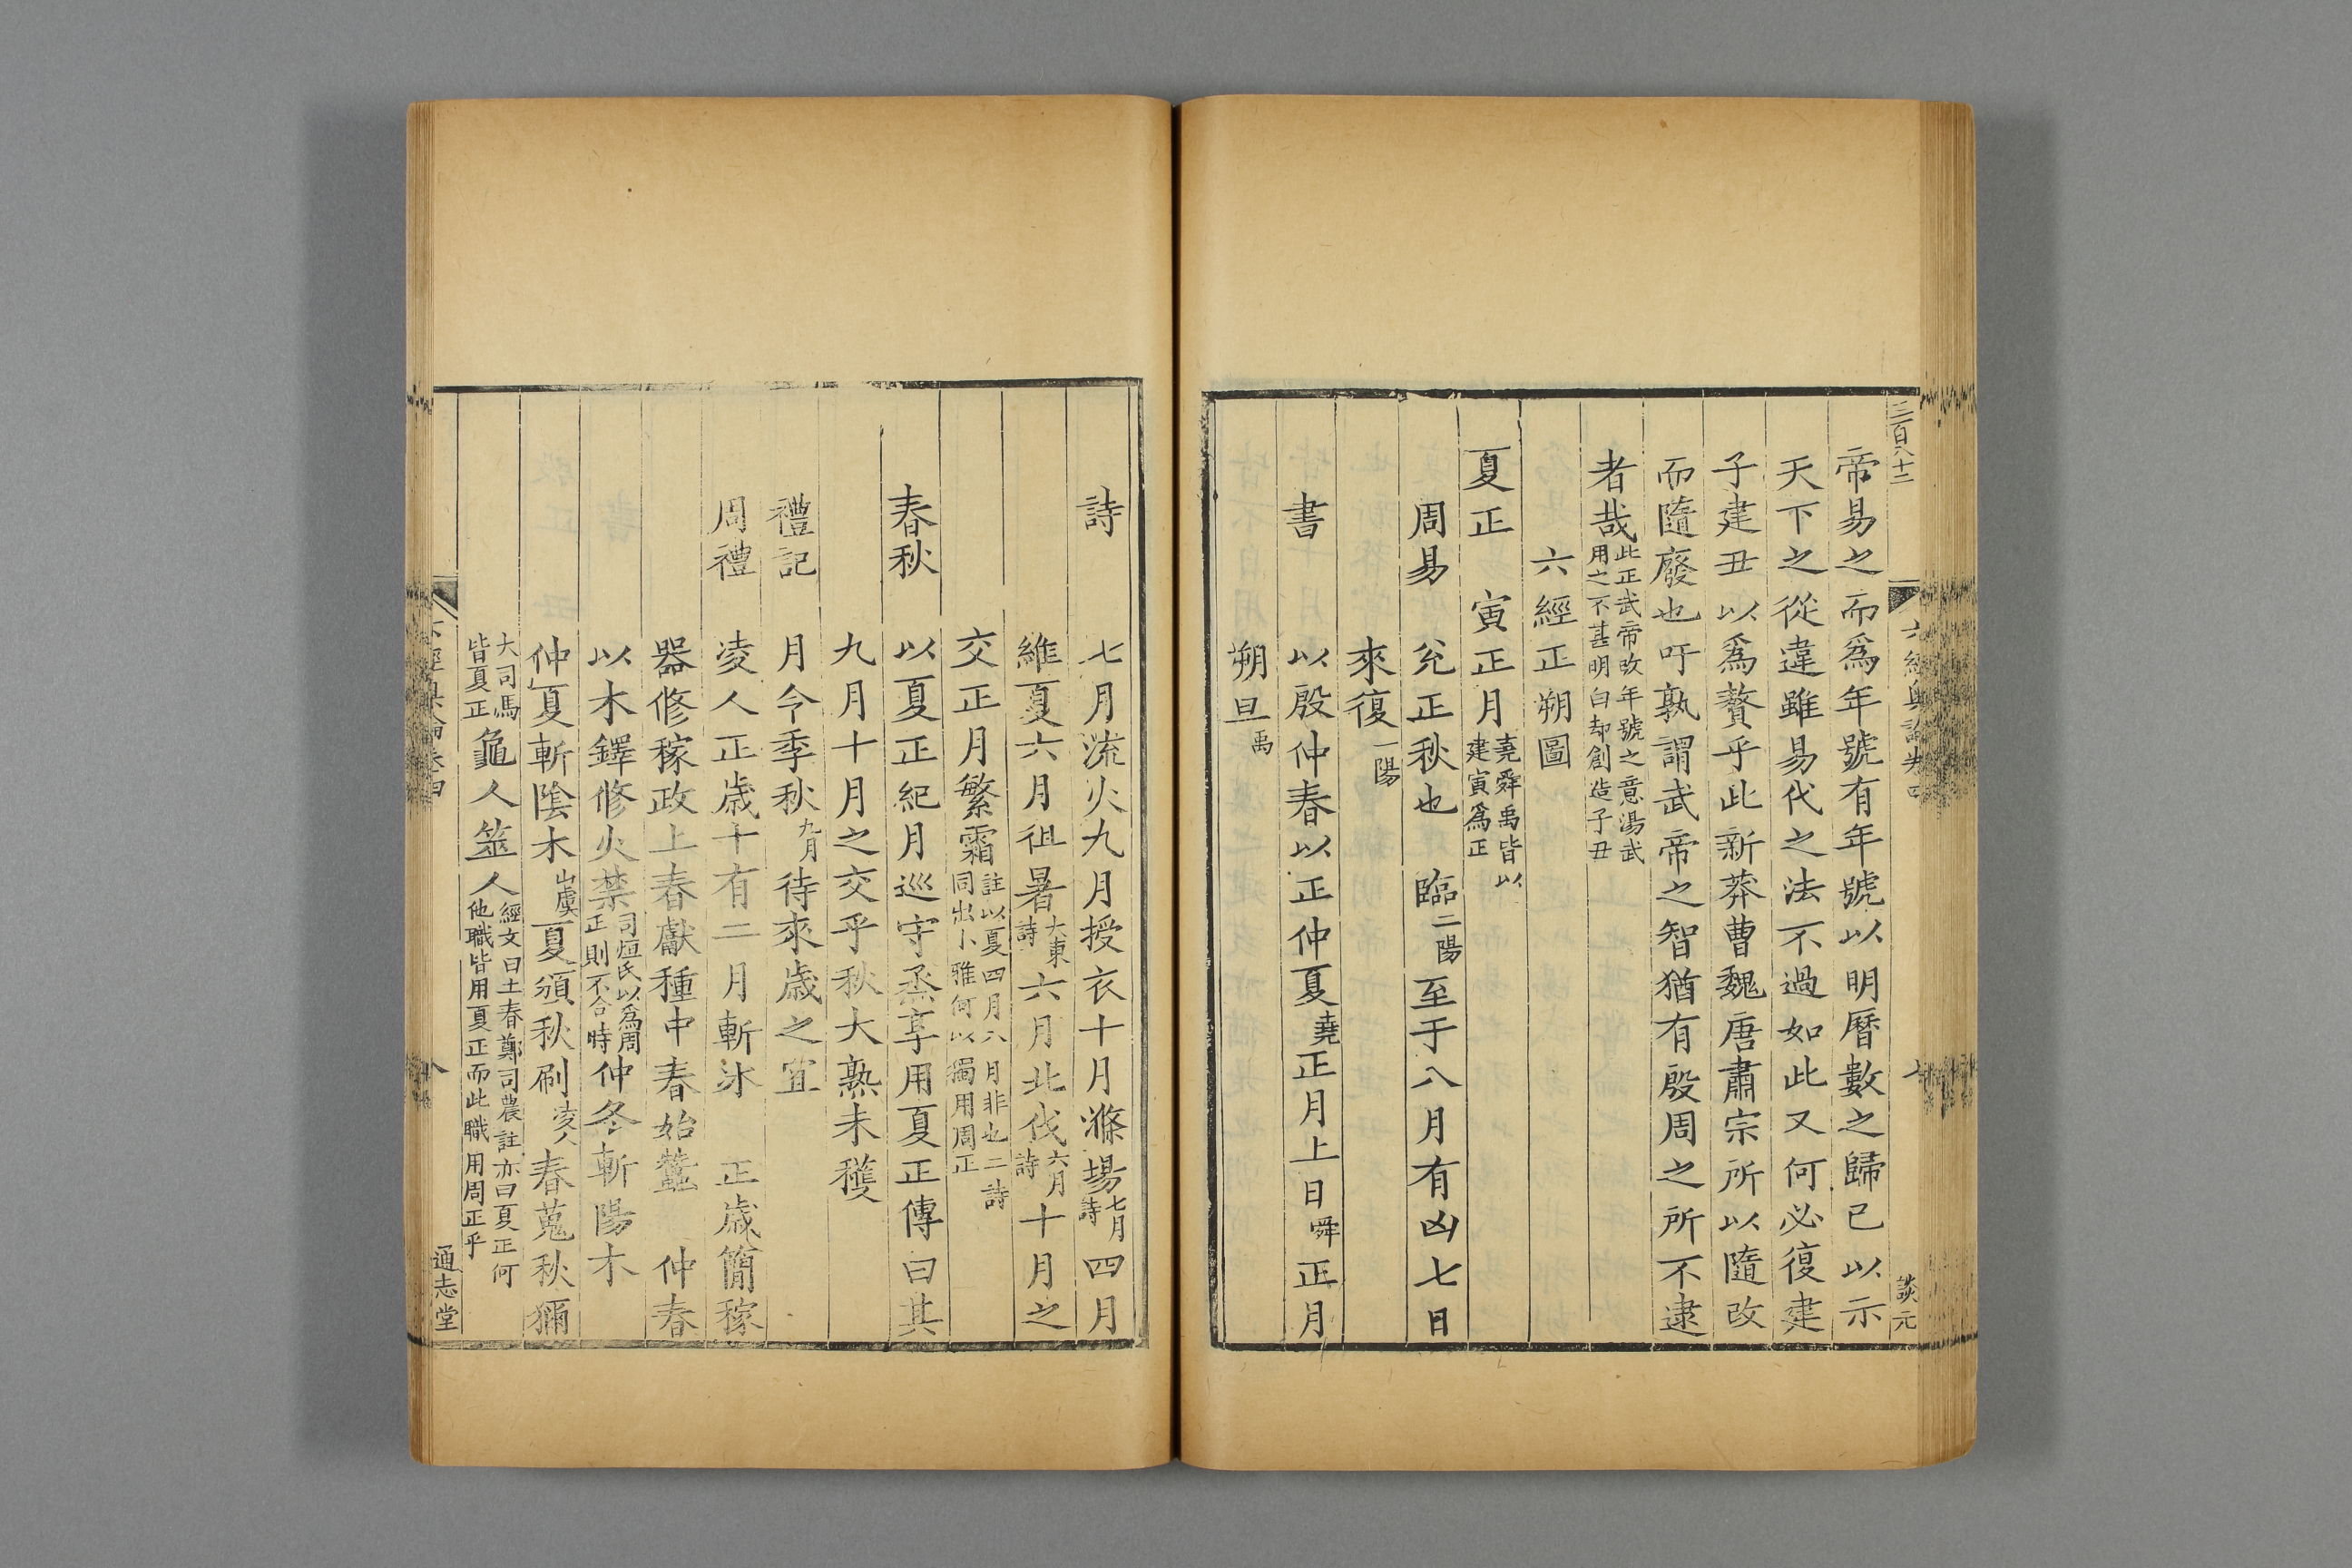 三百八十二
六經奧論卷四
七
談元
帝易之而爲年號有年號以明曆數之歸已以示
天下之從違雖易代之法不過如此又何必復建
子建丑以爲贅乎此新莽曹魏唐肅宗所以隨改
而隨廢也吁孰謂武帝之智猶有殷周之所不逮
者哉此正武帝改年號之意湯武用之不甚明白却創造子丑
六經正朔圖
夏正 寅正月堯舜禹皆以建寅爲正
周易 兊正秋也 臨二陽至于八月有凶七日
來復一陽
書 以殷仲春以正仲夏堯正月上日舜正月
朔旦禹
詩 七月流火九月授衣十月滌場七月詩四月
維夏六月徂暑大東詩六月北伐六月詩十月之
交正月繁霜註以夏四月六月非也二詩同出小雅何以獨用周正
春秋 以夏正紀月巡守烝享用夏正傳曰其
九月十月之交乎秋大熟未穫
禮記 月令季秋九月待來歲之宜
周禮 凌人正歲十有二月斬冰 正歲簡稼
器修稼政上春獻種中春始蠶 仲春
以木鐸修火禁司烜氏以爲周正則不合時仲冬斬陽木
仲夏斬陰木山虞夏頒秋刷凌人春蒐秋獮
大司馬皆夏正龜人簭人經文曰上春鄭司農註亦曰夏正何他職皆用夏正而此職用周正乎
六經奧論卷四
八
通志堂